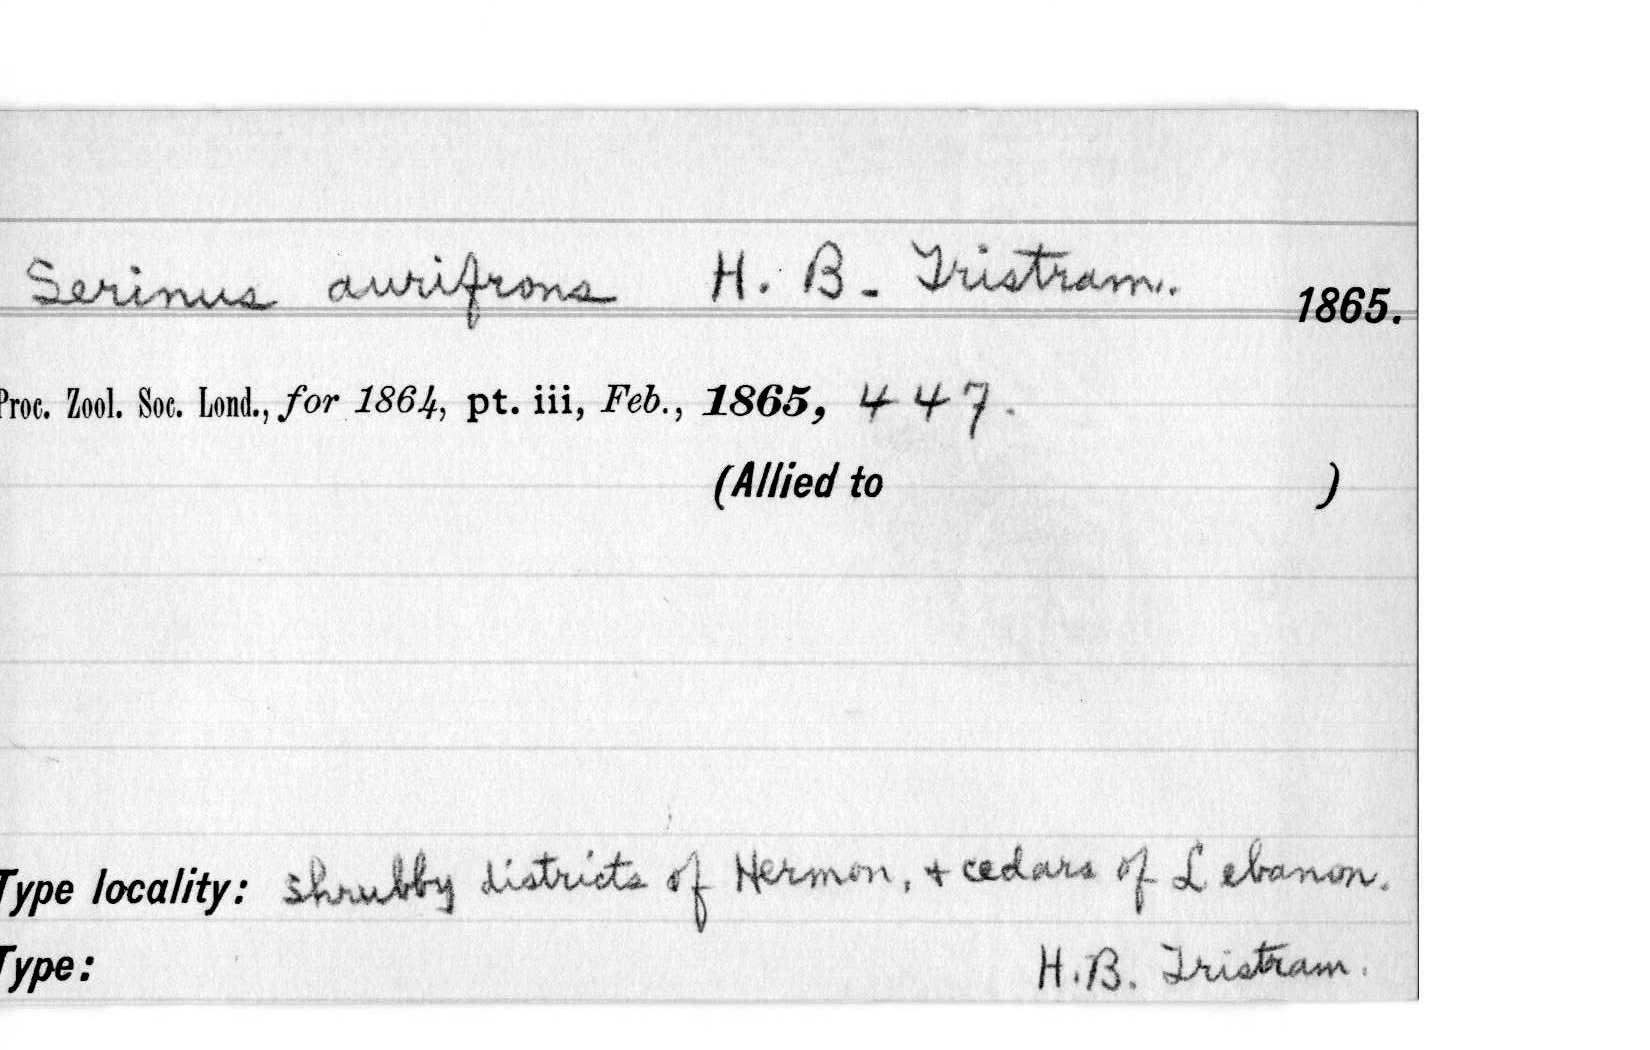 Serinus aurifrons H. B. Tristram. 1865.
Proc. Zool. Soc. Lond., for 1864, pt. iii, Feb., 1865, 447.
(Allied to )
Type locality: shrubby districts of Hermon, & cedars of Lebanon.
Type: H.B. Tristram.